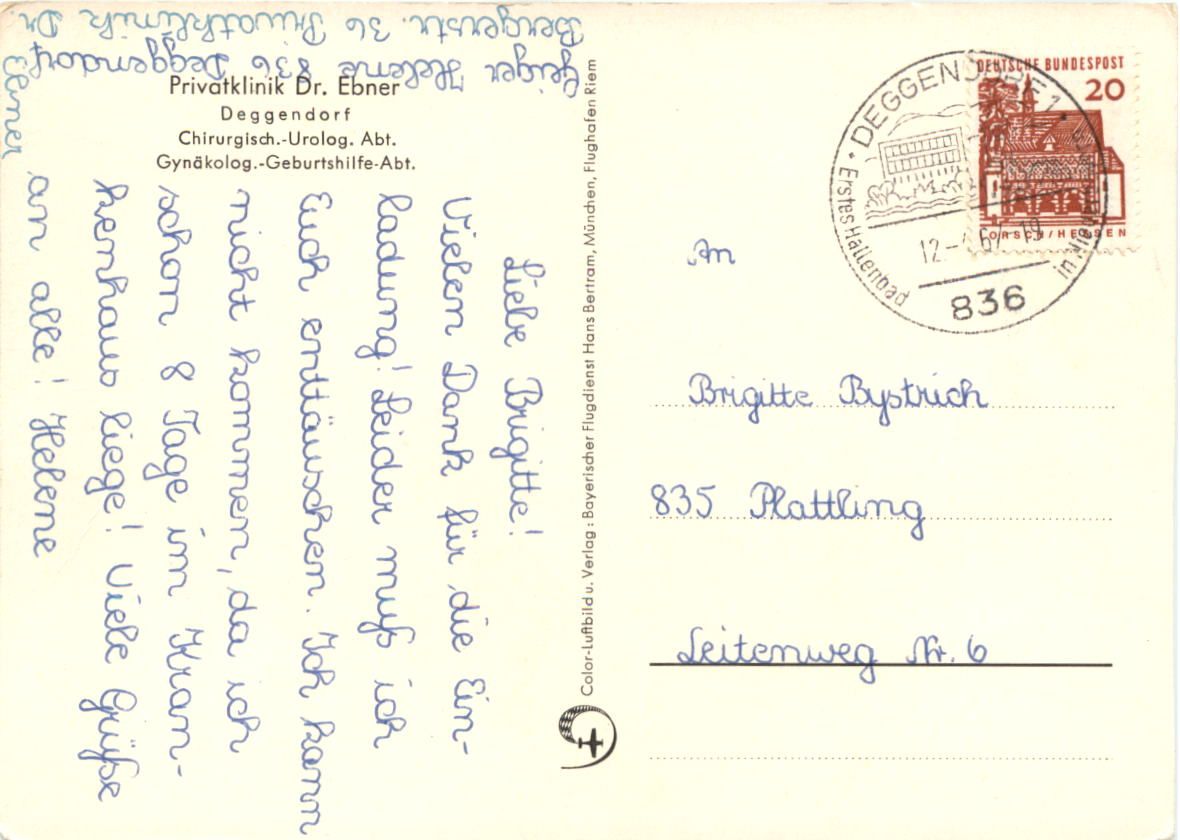 Geiger Helene 836 Deggendorf
Bergerstr. 36 Privatklinik Dr.
Ebner
Privatklinik Dr. Ebner
Deggendorf
Chirurgisch.-Urolog. Abt.
Gynäkolog.-Geburtshilfe-Abt.
Liebe Brigitte!
Vielen Dank für die Ein-
ladung! Leider muß ich
Euch enttäuschen. Ich kann
nicht kommen, da ich
schon 8 Tage im Kran-
kenhaus liege! Viele Grüße
an alle! Helene
Color-Luftbild u. Verlag: Bayerischer Flugdienst Hans Bertram, München, Flughafen Riem
DEUTSCHE BUNDESPOST
20
LORSCH/HESSEN
DEGGENDORF 1
Erstes Hallenbad
in
12.-
67-19
836
An
Brigitte Bystrich
835 Plattling
Leitenweg Nr. 6